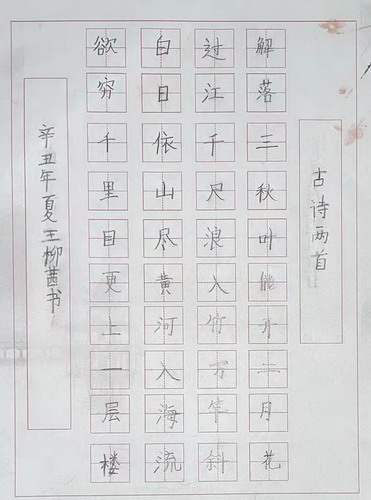 古诗两首
解落三秋叶能开二月花
过江千尺浪入竹万竿斜
白日依山尽黄河入海流
欲穷千里目更上一层楼
辛丑年夏王柳茜书